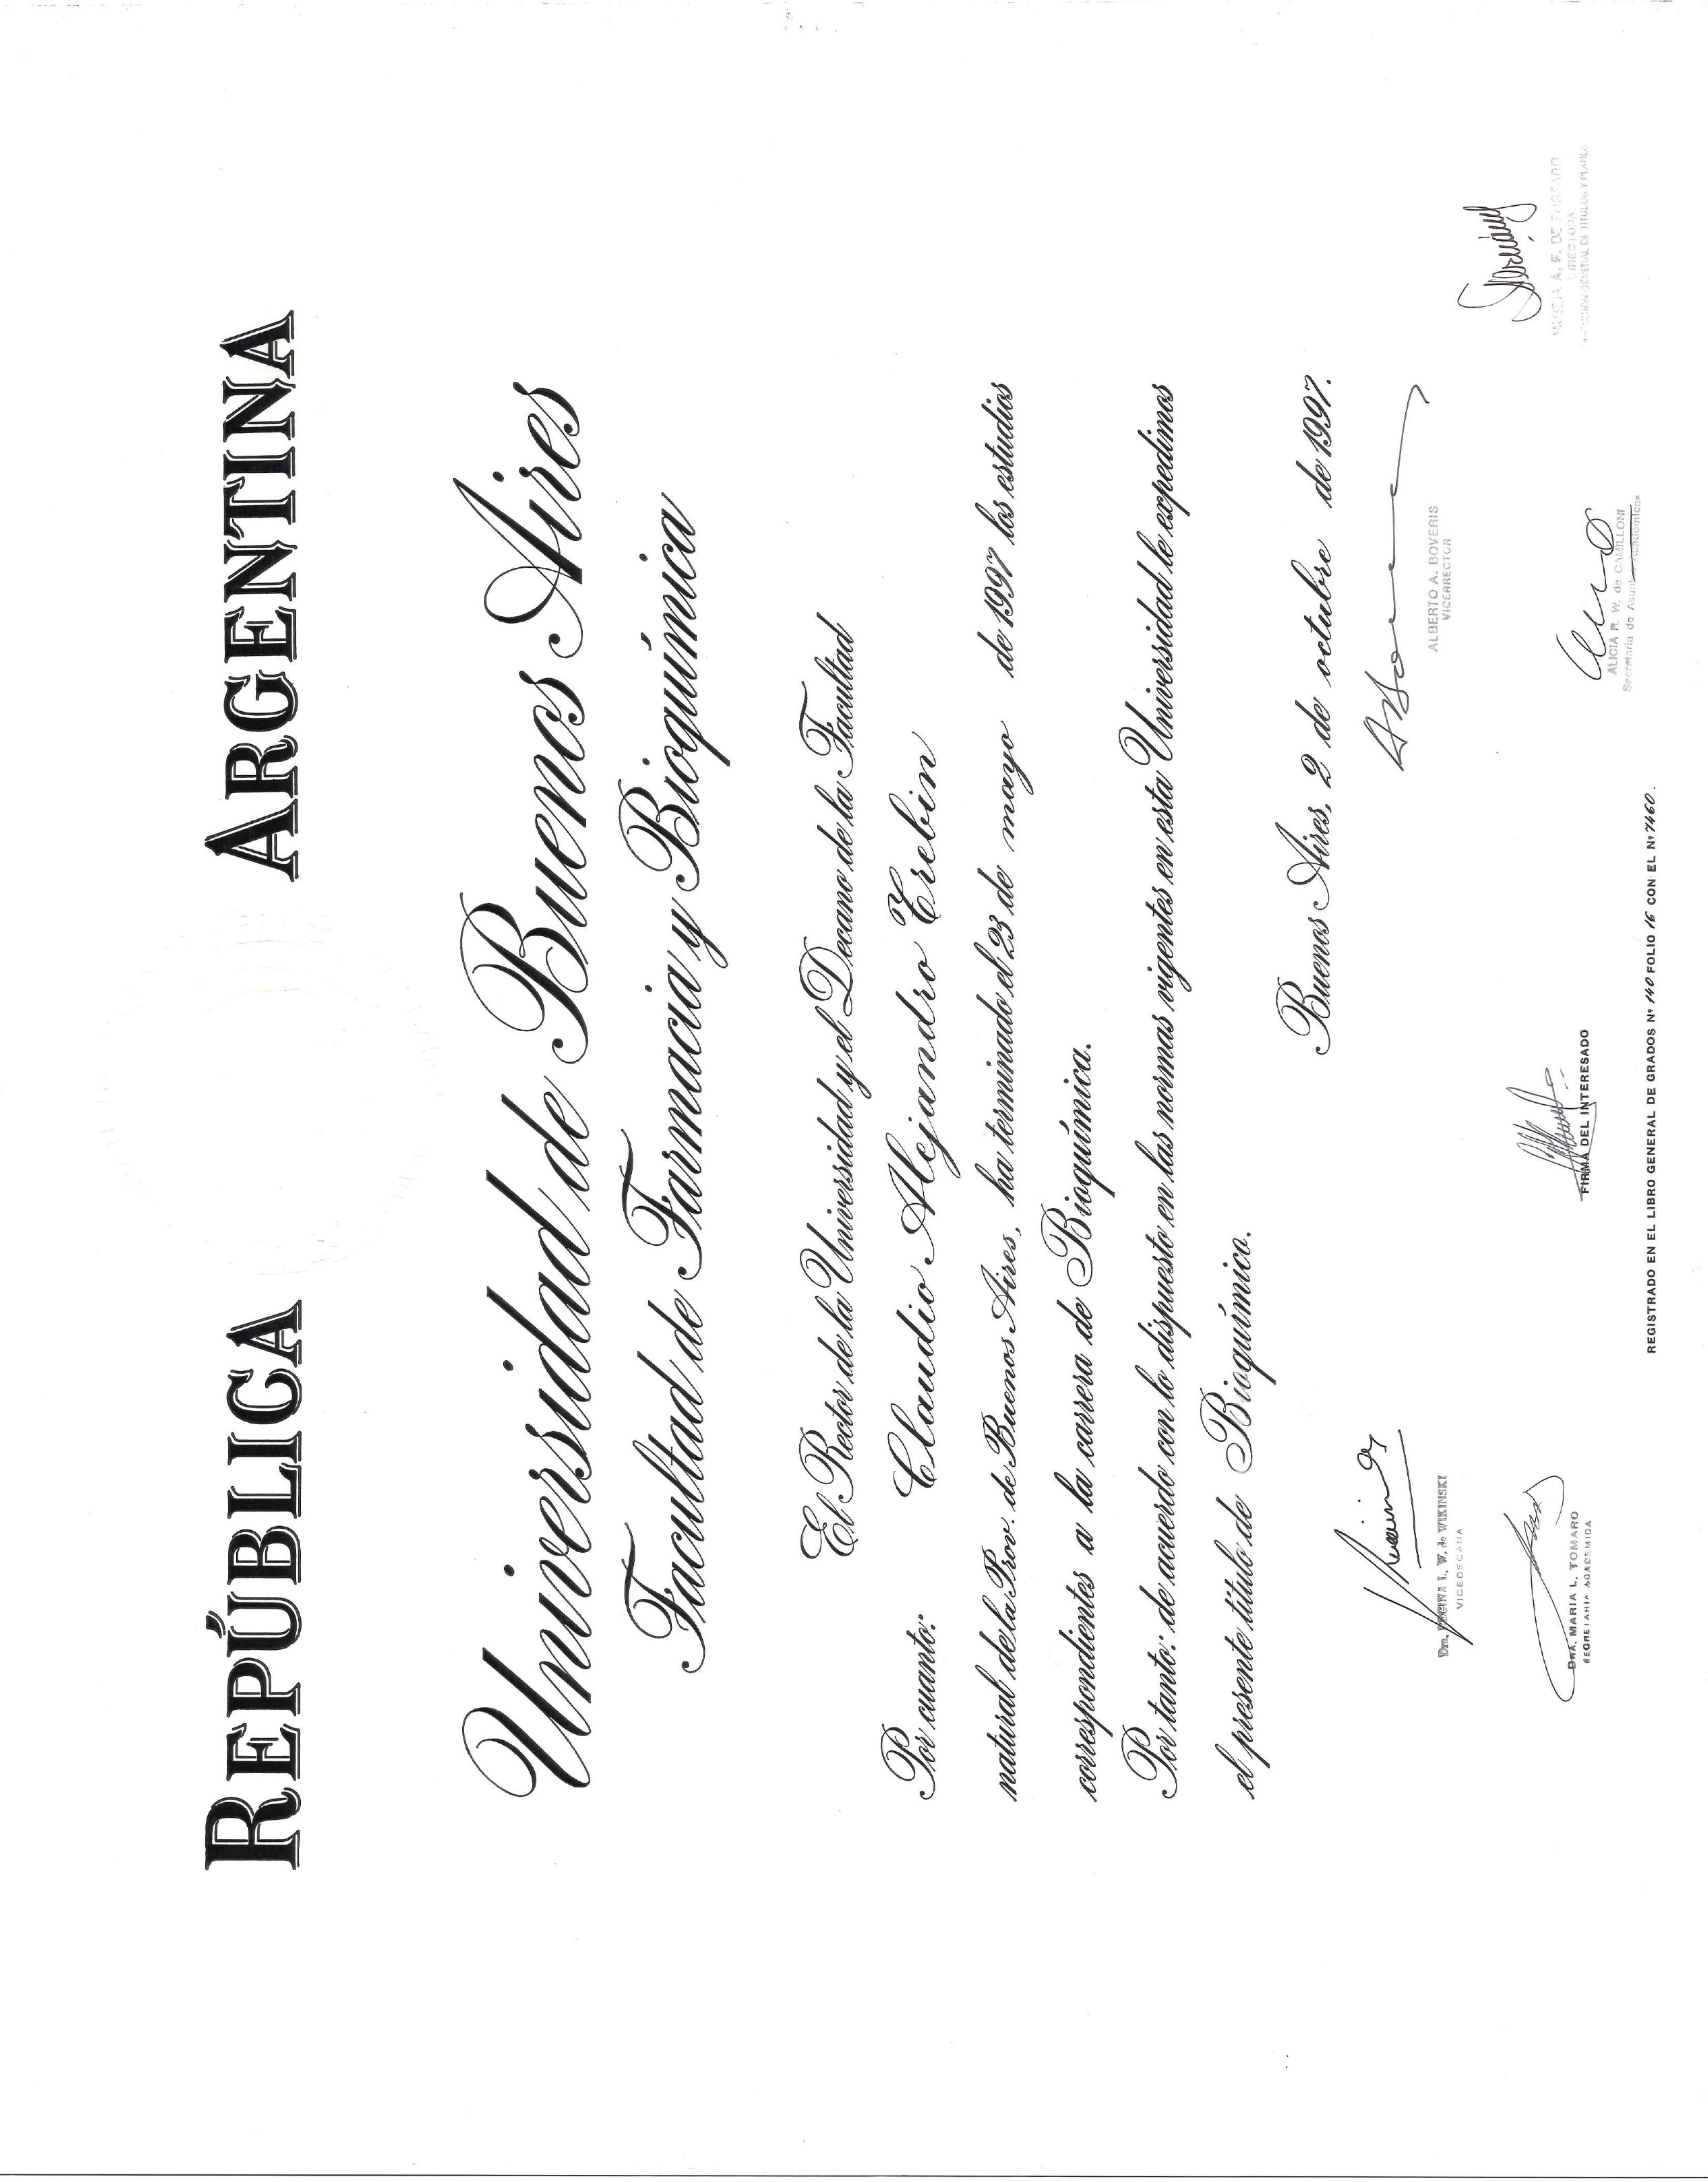 REPÚBLICA ARGENTINA
Universidad de Buenos Aires
Facultad de Farmacia y Bioquímica
El Rector de la Universidad y el Decano de la Facultad
Por cuanto: Claudio Alejandro Trebin
natural de la Prov. de Buenos Aires, ha terminado el 23 de mayo de 1997 los estudios
correspondientes a la carrera de Bioquímica.
Por tanto: de acuerdo con lo dispuesto en las normas vigentes en esta Universidad le expedimos
el presente título de Bioquímico.
Buenos Aires, 2 de octubre de 1997.
Dra. REGINA L. W. de WIKINSKI
VICEDECANA
ALBERTO A. BOVERIS
VICERRECTOR
DRA. MARIA L. TOMARO
SECRETARIA ACADEMICA
FIRMA DEL INTERESADO
A. F. DE
DIRECTORA
GENERAL DE TITULOS Y PLANES
ALICIA R. W. de CAMILLONI
Secretaria de Asuntos Académicos
REGISTRADO EN EL LIBRO GENERAL DE GRADOS Nº 140 FOLIO 16 CON EL Nº 7460.